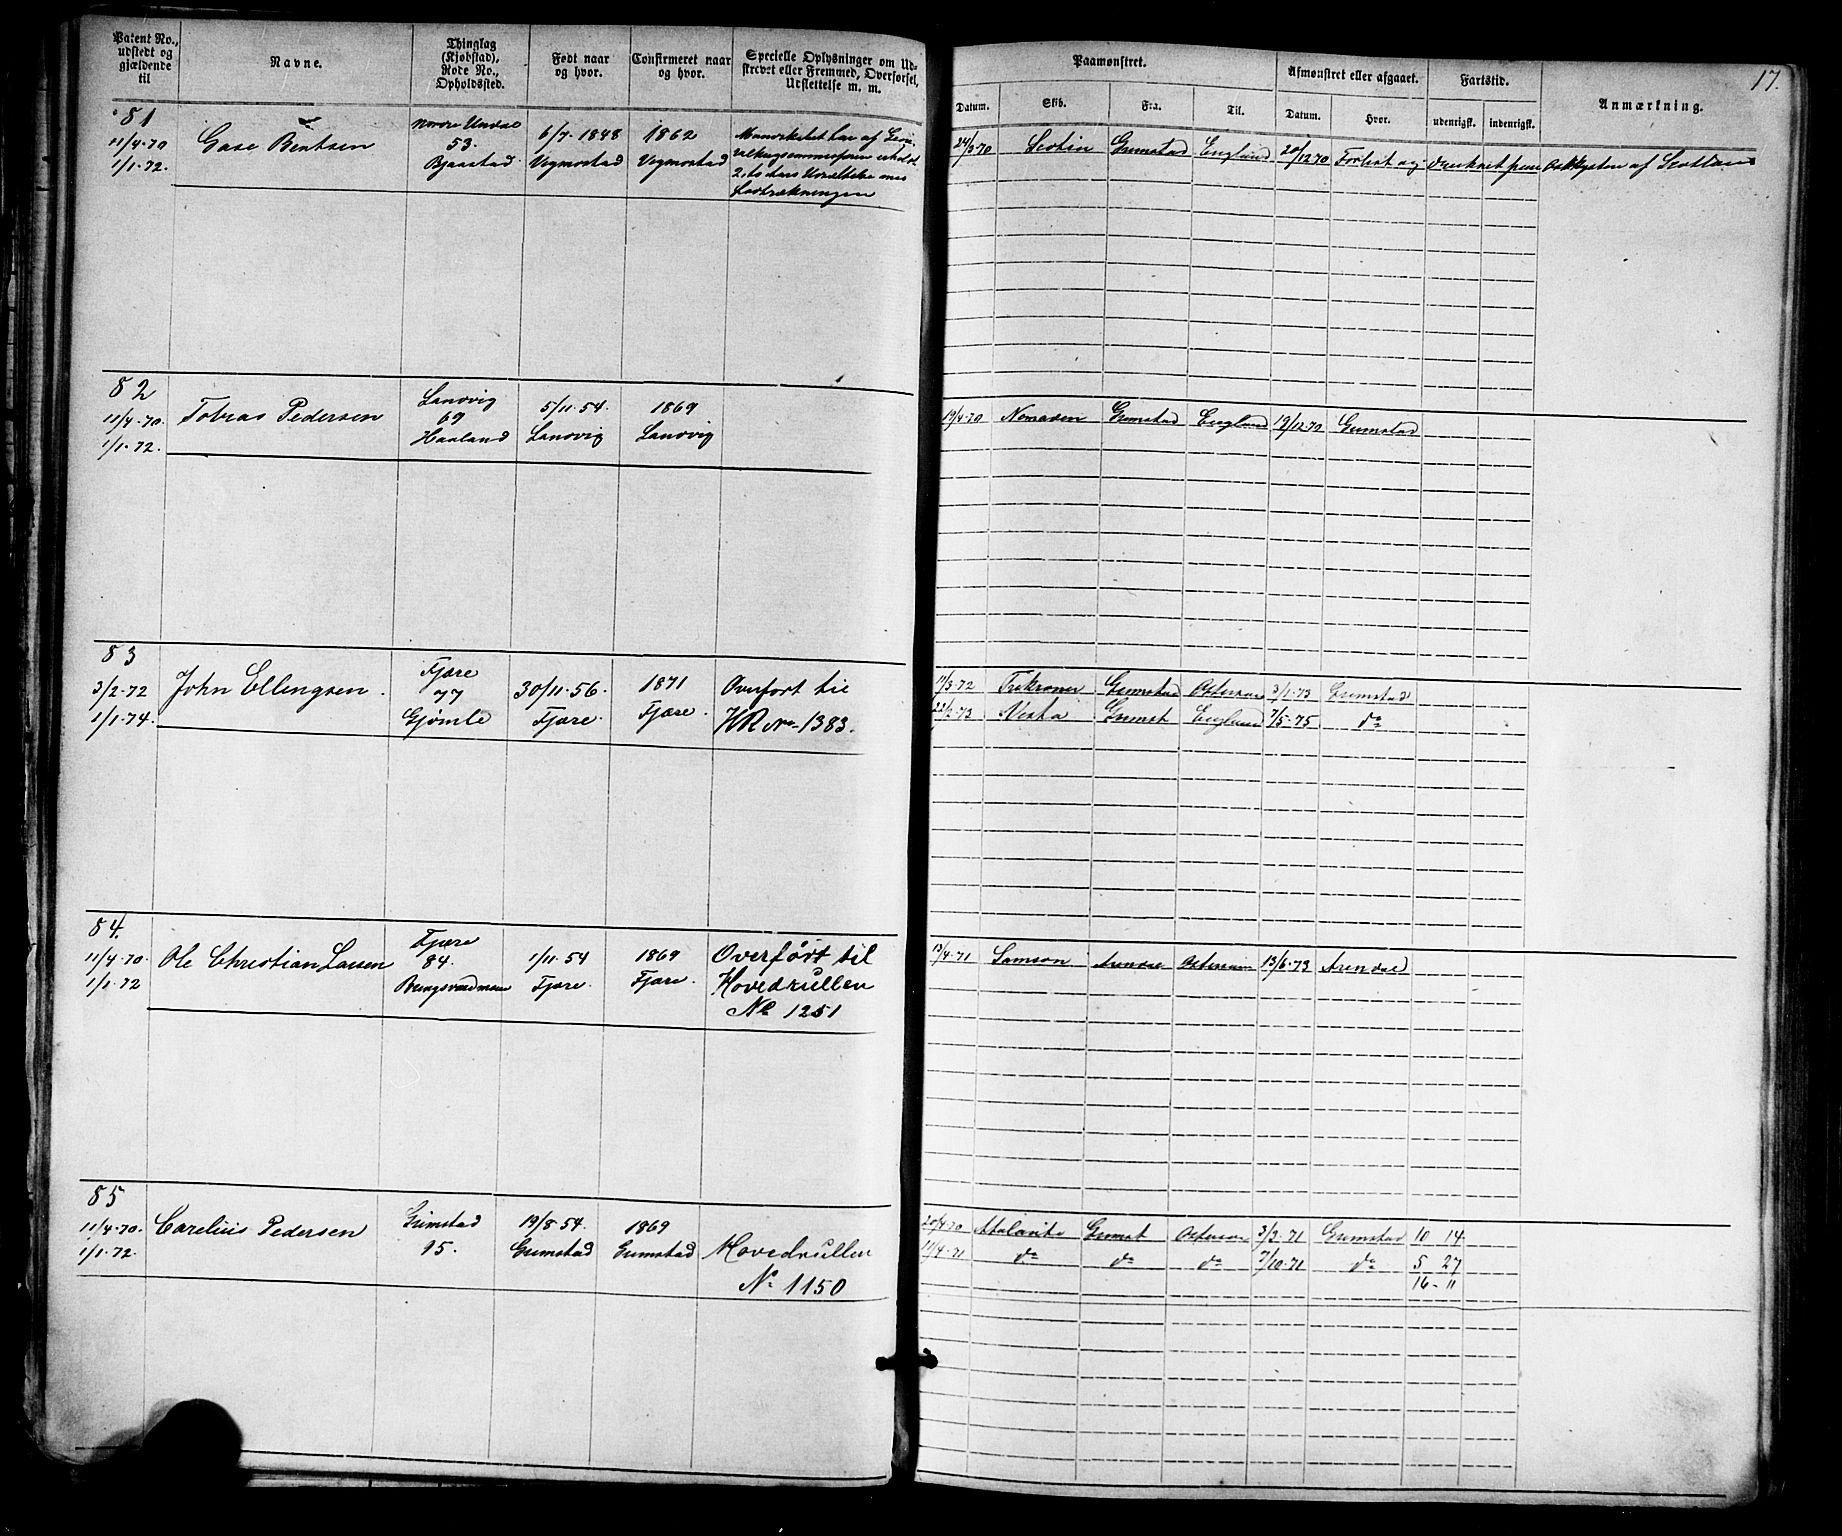 17.
Patent No., udstedt og gjældende til
Navne.
Thinglag (Kjøbstad), Rode No., Opholdssted.
Født naar og hvor.
Confirmeret naar og hvor.
Specielle Oplysninger om Udskrevet eller Fremmed, Overførsel, Udslettelse m. m.
Paamønstret.
Datum.
Skib.
Fra.
Til.
Afmønstret eller afgaaet.
Datum.
Hvor.
Fartstid.
udenrigsk.
indenrigsk.
Anmærkning.
81
11/4-70
1/1-72.
Bentsen
Nordre Undal
53.
Bjaastad
6/7-1848
Vegmostad
1862
Vegmostad
24/3-70
Grimstad
England
20/12-70
Forlist og
af Scotland
82
11/4-70.
1/1-72.
Tobias Pedersen
Landvig
69
Haaland
5/11-54.
Landvig
1869
Landvig
19/4-70
Grimstad
England
19/12-70
Grimstad
83
3/2-72
1/1-74.
John Ellingsen.
Fjære
77
Gjømle
30/11-56.
Fjære.
1871
Fjære.
Overført til
HR No 1383.
11/3-72
Trekroner
Grimstad
Østersøen
3/1-73
Grimstad
22/2-73
Vesta
Grimst
England
7/5-75
do
84.
11/4-70.
1/1-72
Ole Christian Larsen
Fjære
84.
1/11-54
Fjære.
1869
Fjære.
Overført til
Hovedrullen
No 1251
13/4-71
Samson
Arendal
Østersøen
13/6-73
Arendal
85
11/4-70.
1/1-72.
Carelius Pedersen
Grimstad
95.
19/8-54.
Grimstad
1869
Grimstad
Hovedrullen
No 1150
20/4-70
Grimst
Østersøen
3/3-71
Grimstad
10 14
do
do
do
7/10-71
do
5 27
16-11